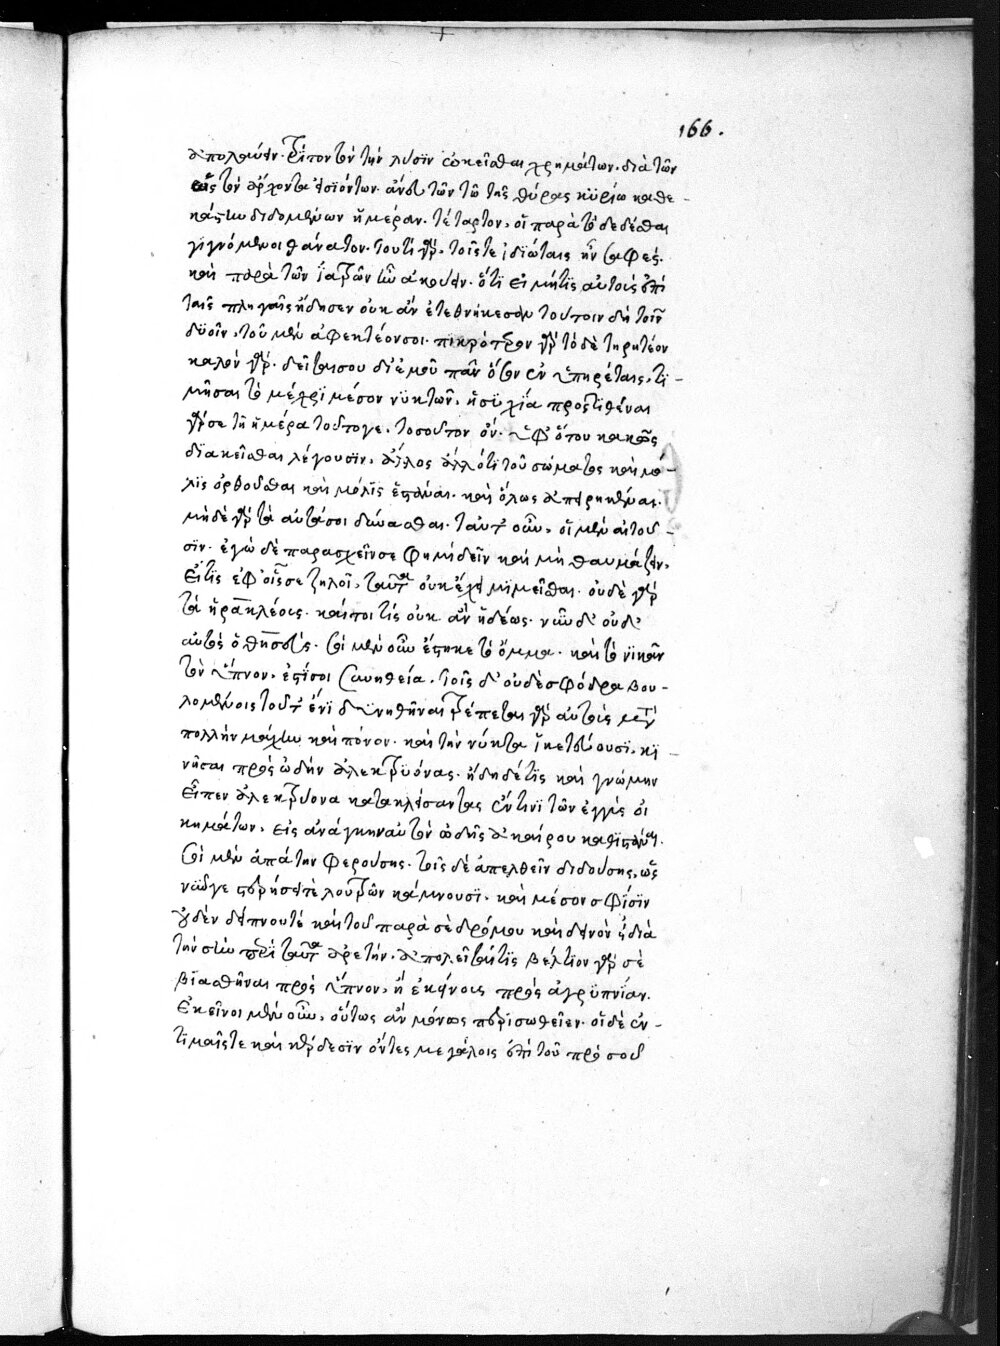 166.
ἀπολαύειν. τρίτον τὸν τὴν λύσιν ὠνεῖσθαι χρημάτων. διὰ τῶν
ὡς τὸν ἄρχοντα εἰσιόντων. ἀντὶ τῶν τῷ τῆς θύρας κυρίῳ καθε-
κάστην διδομένων ἡμέραν. τέταρτον, οἱ παρὰ τὸ δεδέσθαι
γιγνόμενοι θάνατοι. τουτὶ γὰρ, τοῖς τε ἰδιώταις ἦν σαφές.
καὶ παρὰ τῶν ἰατρῶν ἦν ἀκούειν. ὅτι εἰ μή τις αὐτοὺς ἐπὶ
ταῖς πληγαῖς ἔδησεν οὐκ ἂν ἐτεθνήκεσαν τούτοιν δὴ τοῖν
δυοῖν, τοῦ μὲν ἀφεκτέον σοι. πικρότερον γάρ τὸ δὲ τηρητέον
καλὸν γάρ. δεῖται σου δι' ἐμοῦ πᾶν ὅσον ἐν ὑπηρέταις, τι-
μῆσαι τὸ μέχρι μέσον νυκτῶν, ἡσυχία προστιθέναι
γάρ σε τῇ ἡμέρα τοῦτό γε. τοσοῦτον ὄν. ὑφ' ὅτου κακῶς
διακεῖσθαι λέγουσιν, ἄλλος ἄλλό τι τοῦ σώματος καὶ μό-
λις ὀρθοῦσθαι καὶ μόλις ἑστάναι. καὶ ὅλως ἀπειρηκέναι.
μηδὲ γὰρ τὰ αὐτά σοι δύνασθαι. ταῦτ' οὖν, οἱ μὲν αἰτοῦ-
σιν. ἐγὼ δὲ παρασχεῖν σε φημὶ δεῖν καὶ μὴ θαυμάζειν,
εἴ τις ἐφ' οἷς σε ζηλοῖ, ταῦτα οὐκ ἔχει μιμεῖσθαι. οὐδὲ γὰρ
τὰ ἡρακλέους. καίτοι τίς οὐκ ἂν ἡδέως. νῦν δ' οὐδ'
αὐτὸς ὁ θησεύς. σοὶ μὲν οὖν ἔστηκε τὸ ὄμμα. καὶ τὸ νικᾶν
τὸν ὕπνον, ἐστί σοι συνηθεία. τοῖς δ' οὐδὲ σφόδρα βου-
λομένοις τοῦτ' ἔνι δυνηθῆναι τρέπεται γὰρ αὐτοῖς μετὰ
πολλὴν μάχην καὶ πόνον. καὶ τὴν νύκτα ἱκετεύουσι, κι-
νῆσαι πρὸς ὠδὴν ἀλεκτρυόνας. ἤδη δέ τις καὶ γνώμην
εἶπεν ἀλεκτρυόνα κατακλείσαντας ἔν τινι τῶν ἐγγὺς οἰ
κημάτων, εἰς ἀνάγκην αὐτὸν ὠδῆς ἀκαίρου καθιστάναι.
σοὶ μὲν ἀπάτην φερούσης. τοῖς δὲ ἀπελθεῖν διδούσης, ὡς
κάμνουσι. καὶ μέσον σφίσιν
οὐδὲν δείπνου τὲ καὶ τοῦ παρὰ σὲ δρόμου καὶ δεινὸν εἰ διὰ
τὴν σὴν περὶ ταῦτα ἀρετήν. ἀπολεῖταί τις βέλτιον γάρ σὲ
βιασθῆναι πρὸς ὕπνον, ἢ ἐκείνοις πρὸς ἀγρυπνίαν.
Ἐκεῖνοι μὲν οὖν, οὕτως ἂν μόνως περισωθεῖεν. οἱ δὲ ἐν-
τιμαῖς τε καὶ κέρδεσιν ὄντες μεγάλοις ἐπὶ τοῦ πρὸ σοῦ